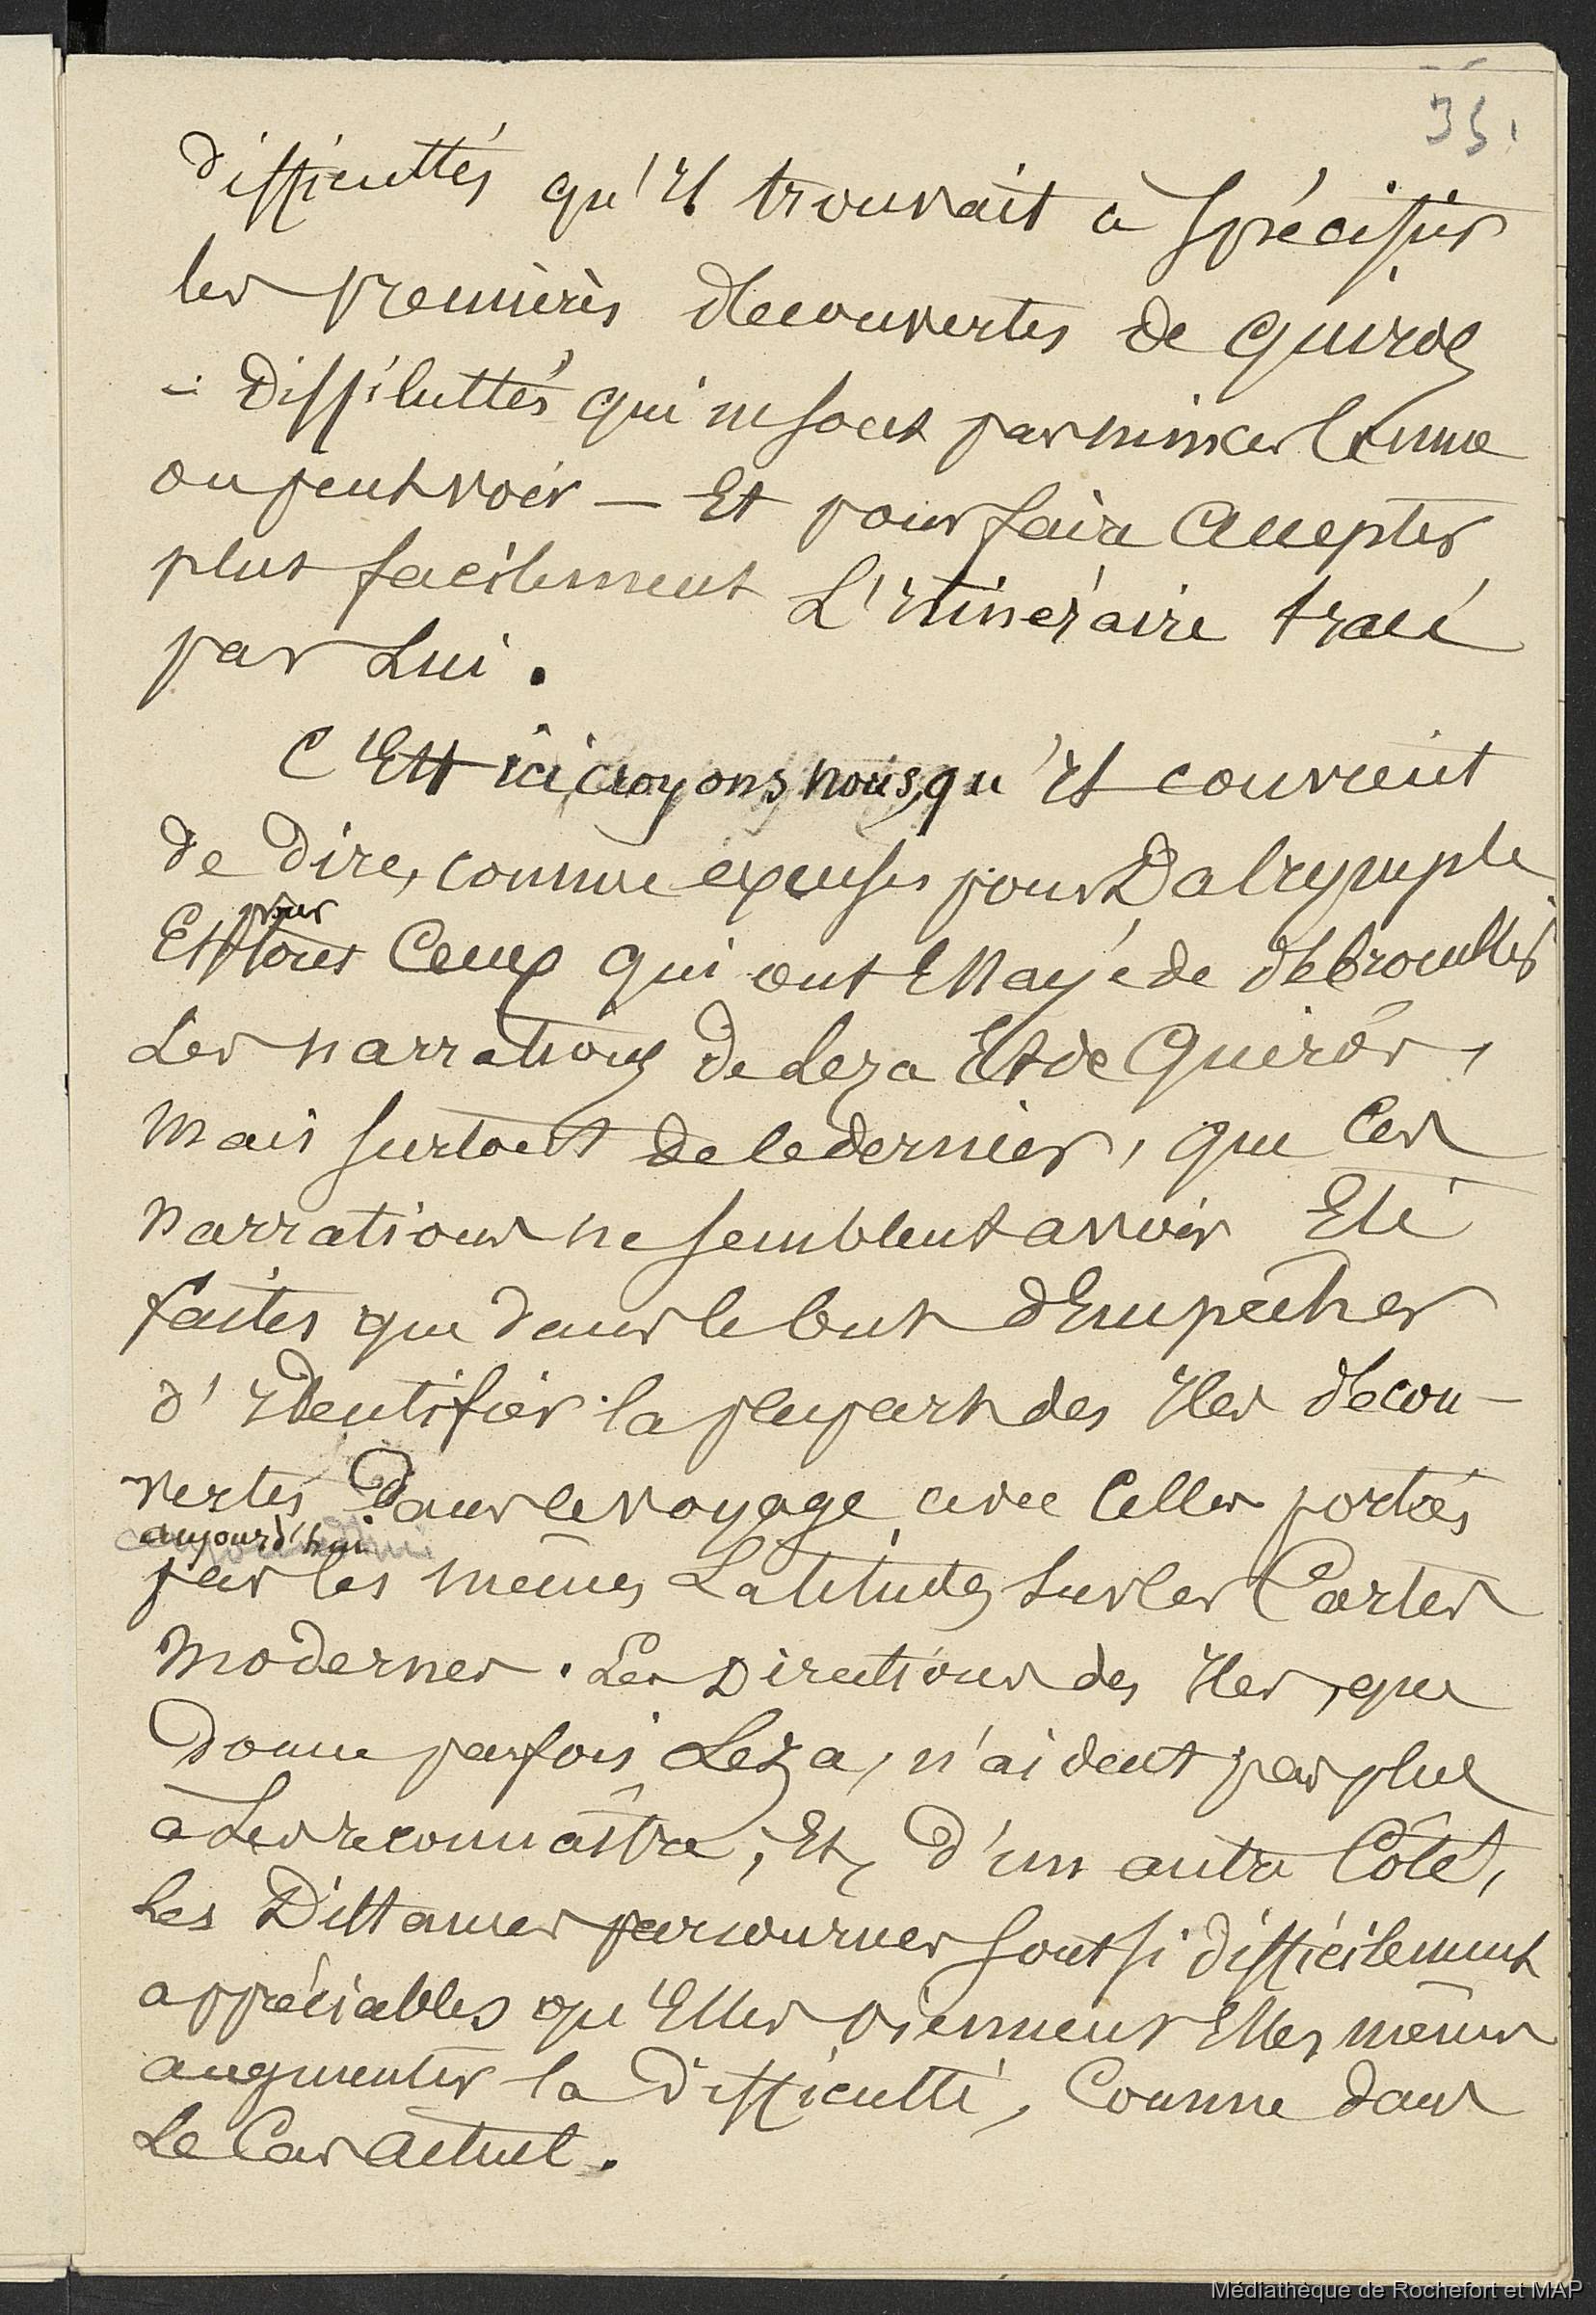 35.
difficultés qu'Il trouvait à spécifier
les premières decouvertes de Quiros
- Difficultés qui ne sont pas minces comme
on peut voir — Et pour faire accepter
plus facilement L'Itinéraire tracé
par Lui.
C'Est ici croyons nous, qu'Il convient
de Dire, comme excuses pour Dalrymple
pour
Et tous Ceux qui ont Essayé de debrouiller
Les narrations de Leza Et de Quiros,
Mais surtout de ce dernier, que Ces
narrations ne semblent avoir Eté
faites que dans le but d'Empêcher
d'Identifier la plupart des Iles decou-
vertes Dans le voyage avec Celles portées
aujourd'hui
par les mêmes Latitudes sur les Cartes
Modernes. Les Directions des Iles, que
Donne parfois Leza, n'aident pas plus
à Les reconnaître, Et, D'un autre Côté,
Les Distances parcourues sont si difficilement
appréciables qu'Elles viennent Elles mêmes
augmenter la Difficulté, Comme dans
Le Cas Actuel.
Médiathèque de Rochefort et MAP